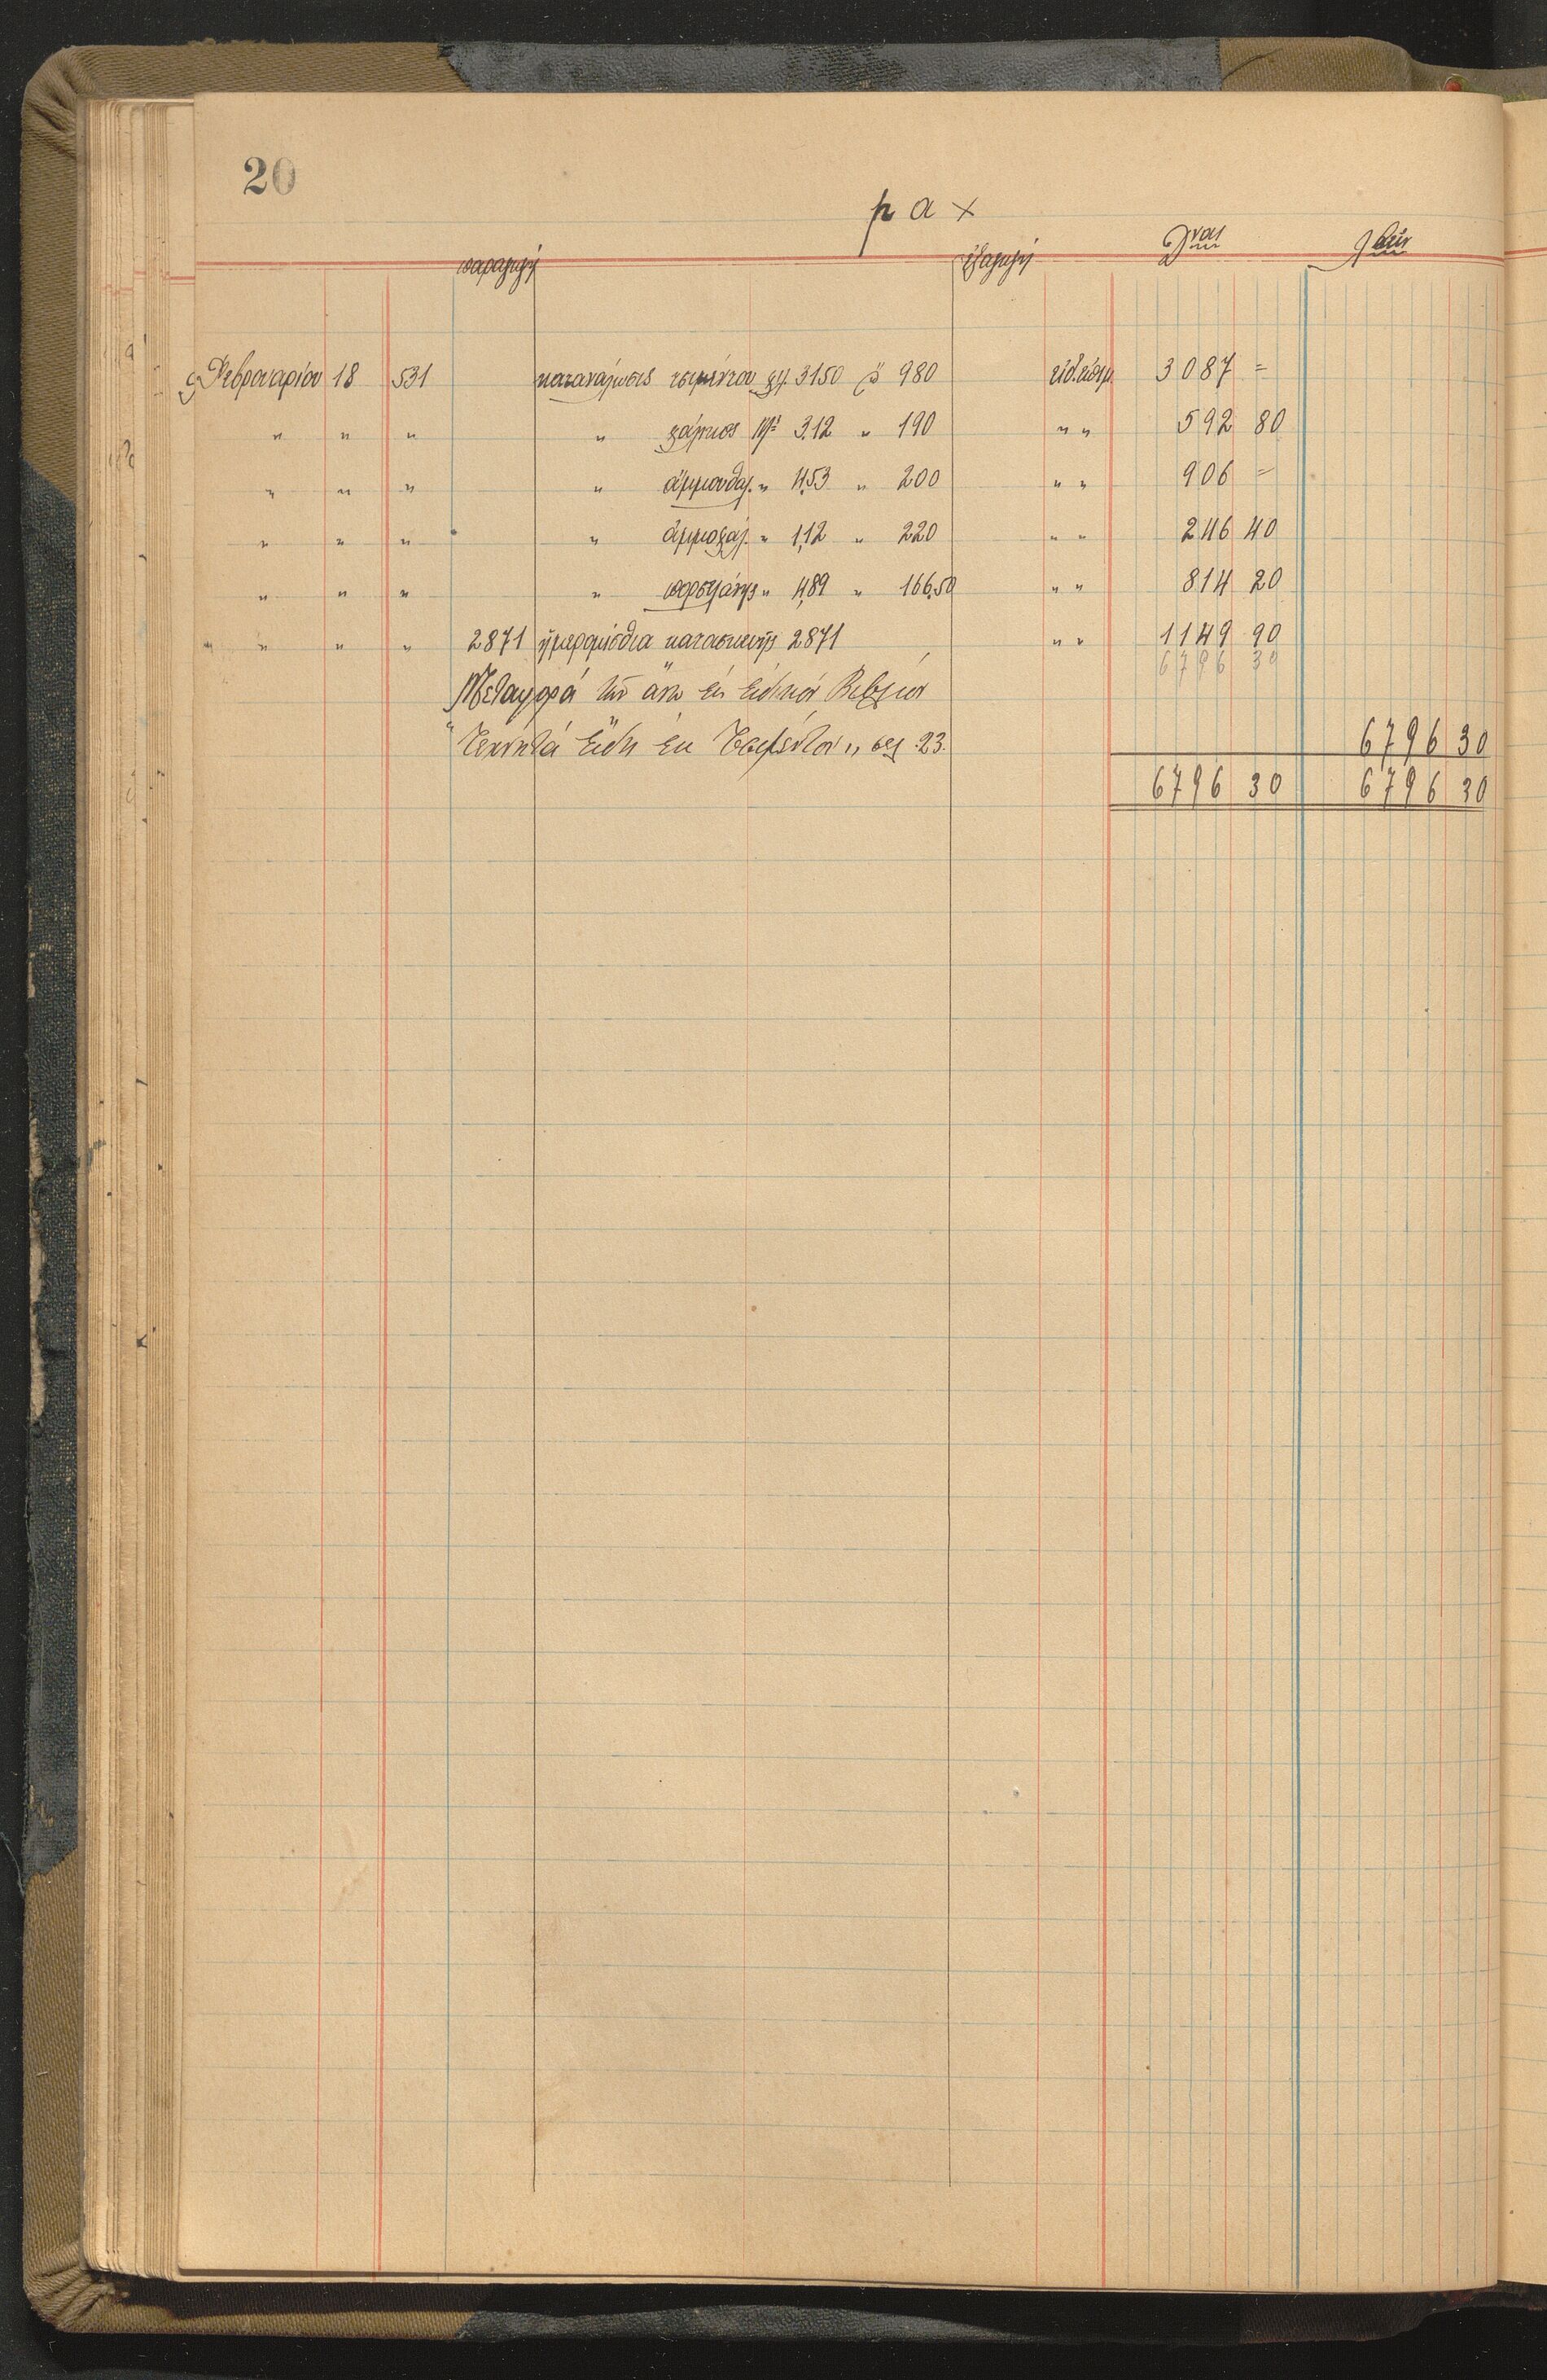 20
ρ α χ
παραγωγή ἐξαγωγή Δναι Λειν
Φεβρουαρίου 18 531 κατανάλωσις τσιμέντου χλγ. 3150 ,, 980 εἰδ. εἰσαγ. 3087 =
" " " " χάλικος Μ³ 3,12 " 190 " " 592 80
" " " " ἀμμουδαλ. " 4,53 " 200 " " 906 =
" " " " ἀμμοχάλ. " 1,12 " 220 " " 246 40
" " " " πορσελάνης " 4,89 " 166,50 " " 814 20
" " " " 2871 ἡμερομίσθια κατασκευῆς 2871 " " 1149 90
6796 30
Μεταφορά τῶν ἄνω εἰς εἰδικόν Βιβλίον
"Τεχνητά Εἴδη ἐκ Τσιμέντου" σελ. 23. 6796 30
6796 30 6796 30